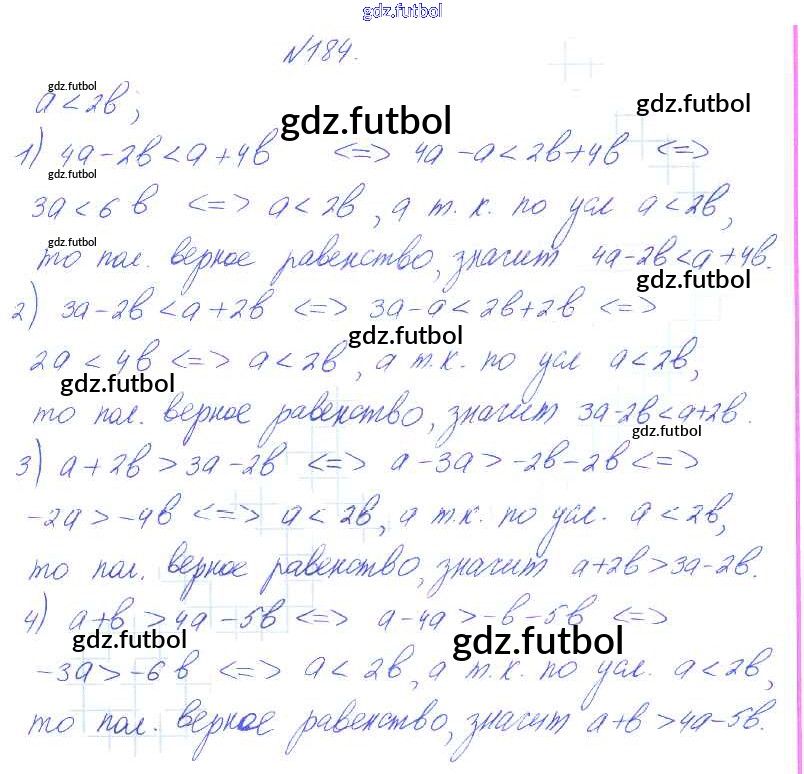 gdz.futbol
N184.
gdz.futbol
a < 2b;
gdz.futbol
gdz.futbol
1) 4a - 2b < a + 4b <=> 4a - a < 2b + 4b <=>
gdz.futbol
3a < 6b <=> a < 2b, а т.к. по усл a < 2b,
gdz.futbol
то пол. верное равенство, значит 4a - 2b < a + 4b.
gdz.futbol
2) 3a - 2b < a + 2b <=> 3a - a < 2b + 2b <=>
gdz.futbol
2a < 4b <=> a < 2b, а т.к. по усл a < 2b,
gdz.futbol
то пол. верное равенство, значит 3a - 2b < a + 2b.
gdz.futbol
3) a + 2b > 3a - 2b <=> a - 3a > -2b - 2b <=>
-2a > -4b <=> a < 2b, а т.к. по усл. a < 2b,
то пол. верное равенство, значит a + 2b > 3a - 2b.
4) a + b > 4a - 5b <=> a - 4a > -b - 5b <=>
gdz.futbol
gdz.futbol
-3a > -6b <=> a < 2b, а т.к. по усл. a < 2b,
то пол. верное равенство, значит a + b > 4a - 5b.